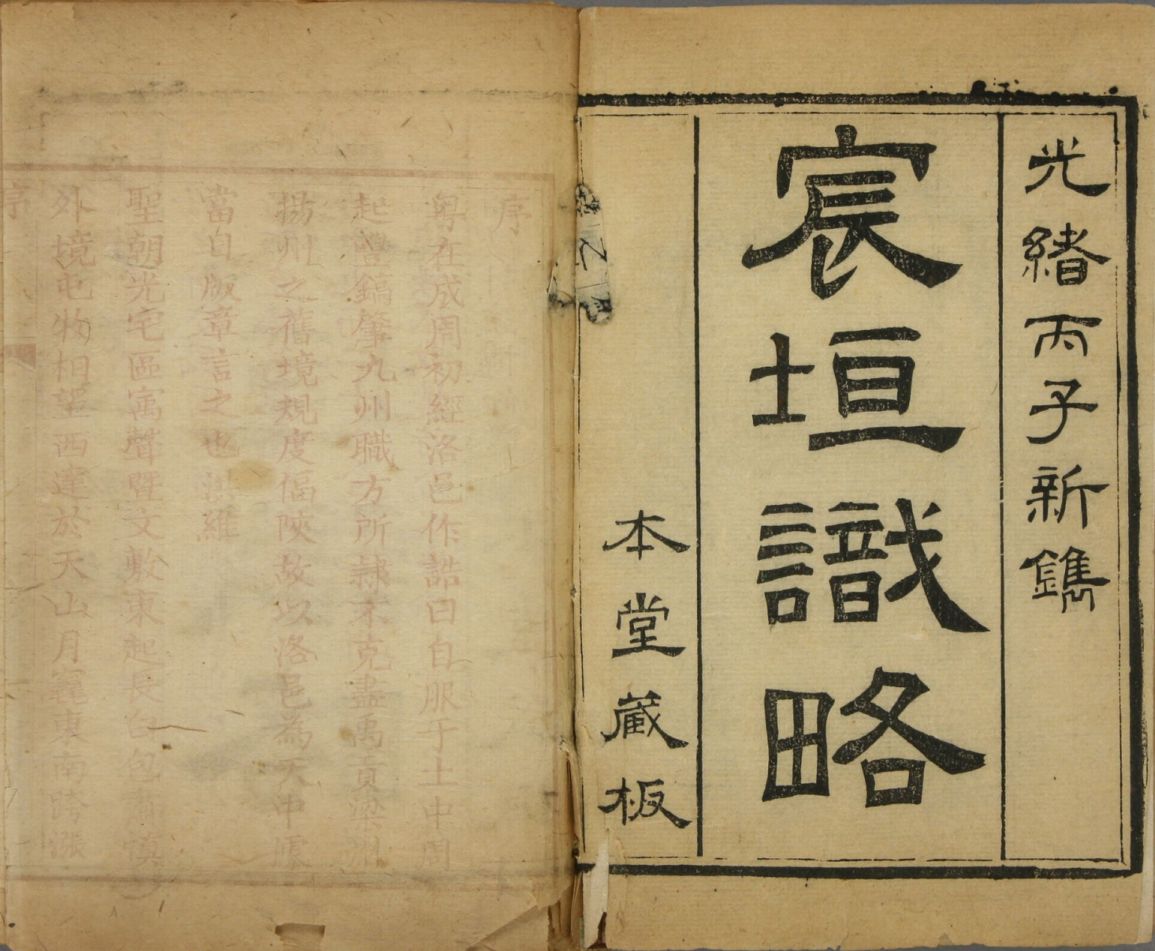 光緒丙子新鐫
宸垣識略
本堂藏板
序
粵在成周初經洛邑作誥曰自服于土中周
起鎬肇九州職方所隸不克盡禹貢
揚州之舊境規度偪陝故以洛邑為天中
當自版章言之也洪維
聖朝光宅區寓聲暨文敷東起長白包
外境屯牧相望西達於天山月竁東南跨漲
序